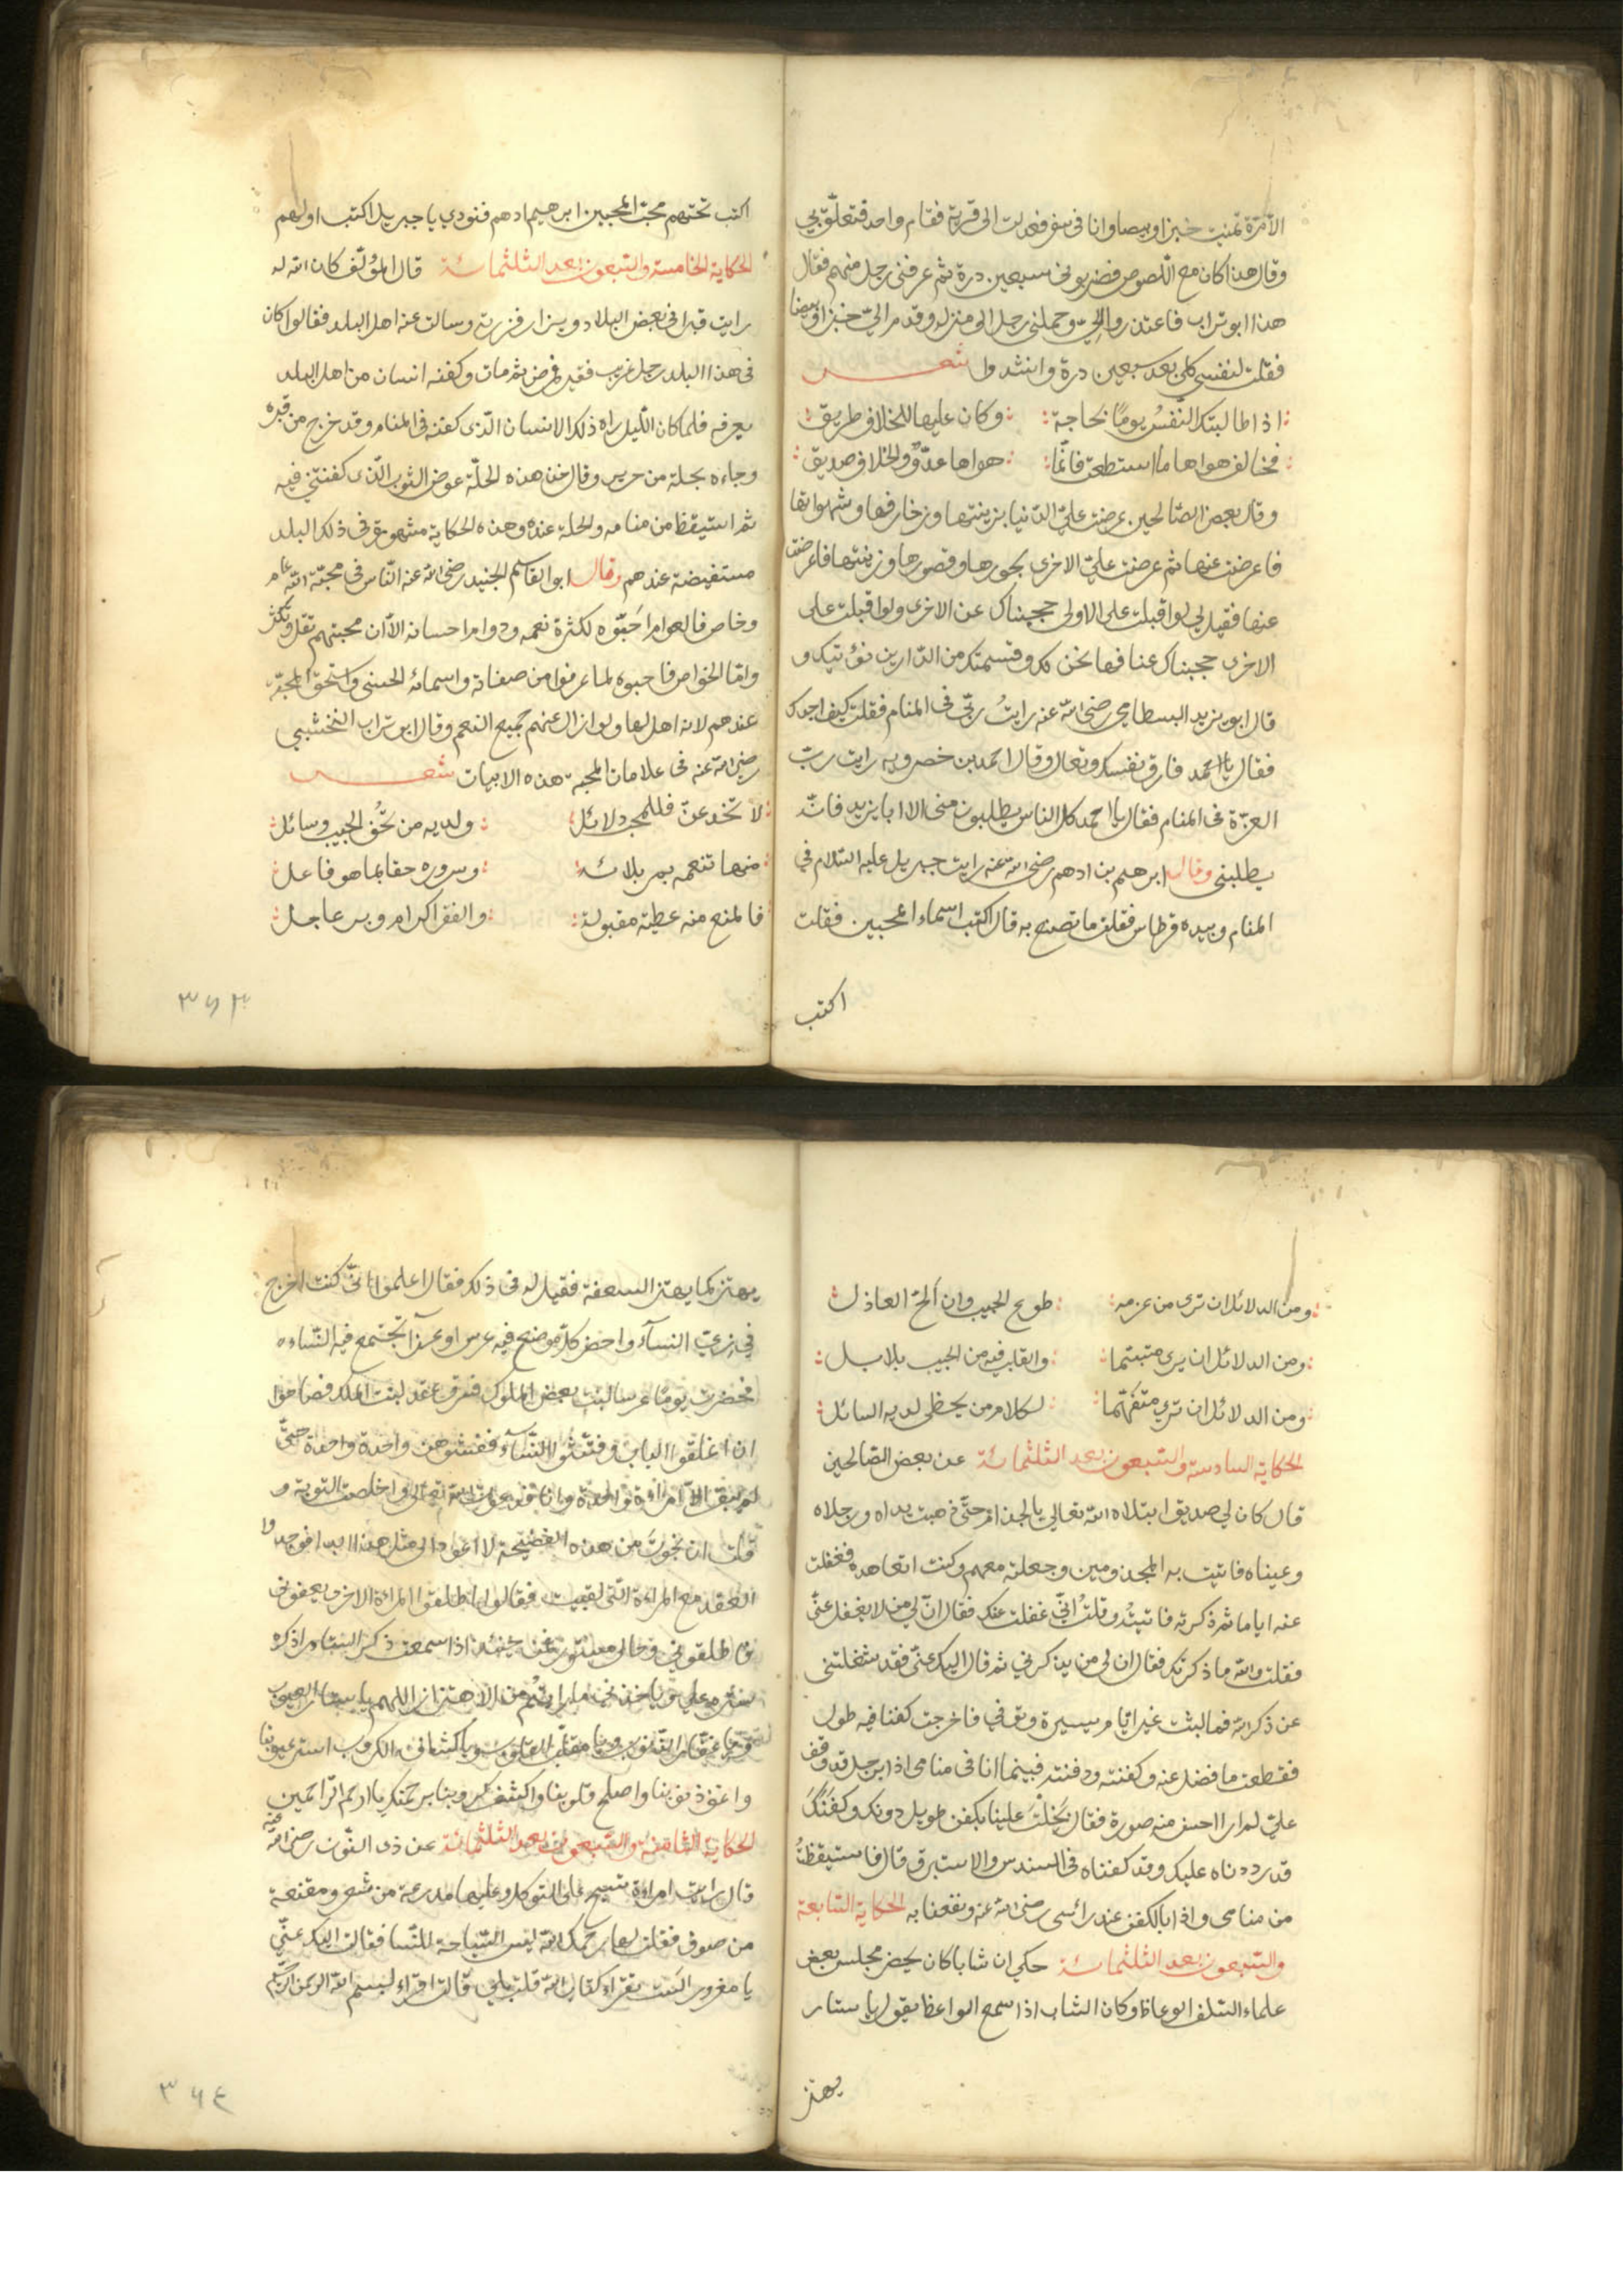 الا مرة تمنيت خبزا وبيضا وانا في سفر فعدلت الى قرية فقام واحد فتعلق بي
وقال هذا كان مع اللصوص فضربوني سبعين درة ثم عرفني رجل منهم فقال
هذا ابو تراب فاعتذروا الىّ وحملني رجل الى منزله وقدم الىّ خبزا وبيضا
فقلت لنفسي كلي بعد سبعين درة وانشدوا شعر
اذا طالبتك النفسُ يومًا بحاجة وكان عليها للخلاف طريق
فخالف هواها ما استطعت فانما هواها عدوٌّ والخلاف صديق
وقال بعض الصالحين عرضت علىّ الدنيا بزينتها وزخارفها وشهواتها
فاعرضت عنها ثم عرضت علىّ الاخرى بحورها وقصورها وزينتها فاعرضت
عنها فقيل لي لو اقبلت على الاولى حجبناك عن الاخرى ولو اقبلت على
الاخرى حجبناك عنا فها نحن لك وقسمتك من الدارين نؤتيك و
قال ابو يزيد البسطامي رضي الله عنه رايتُ ربّي في المنام فقلت كيف اجدك
فقال يا احمد فارق نفسك وتعال وقال احمد بن خضرويه رايت ربّ
العزّة في المنام فقال يا احمد كل الناس يطلبون مني الا ابا يزيد فانّه
يطلبني وقال ابرهيم بن ادهم رضي الله عنه رايت جبريل عليه السلام في
المنام وبيده قرطاس فقلت ما تصنع به قال اكتب اسماء المحبين فقلت
اكتب
اكتب تحتهم محبّ المحبين ابرهيم ادهم فنودي يا جبريل اكتب اولهم
الحكاية الخامسة والسبعون بعد الثلثمائة قال المؤلف كان الله له
رايت قبرا في بعض البلاد ويزار فزرته وسالت عنه اهل البلد فقالوا كان
في هذا البلد رجل غريب فقير فمرض ثم مات وكفنه انسان من اهل البلد
يعرفه فلما كان الليل راه ذلك الانسان الذي كفنه في المنام وقد خرج من قبره
وجاءه بحلة من حرير وقال خذ هذه الحلّة عوض الثوب الذي كفنتني فيه
ثم استيقظ من منامه والحلة عنده وهذه الحكاية مشهورة في ذلك البلد
مستفيضة عندهم وقال ابو القاسم الجنيد رضي الله عنه الناس في محبّة الله عام
وخاص فالعوام احَبّوه لكثرة نعمه ودوام احسانه الا ان محبتهم تقل وتكثر
واما الخواص فاحبوه لما عرفوا من صفاته واسمائه الحسنى واستحق المحبة
عندهم لانه اهل لها ولو ازال عنهم جميع النعم وقال ابو تراب النخشبي
رضي الله عنه في علامات المحبة هذه الابيات شعر
لا تخدعنّ فللمحب دلائل ولديه من تحَف الحبيب وسائل
منها تنعمه بمر بلائه وسروره حقا بما هو فاعل
فالمنع منه عطية مقبولة والفقر اكرام وبر عاجل
٣٦٣
ومن الدلائل ان ترى من عزمه طوع الحبيب وان الحّ العاذل
ومن الدلائل ان يرى متبتما والقلب فيه من الحبيب بلابل
ومن الدلائل ان ترى متفهّما لكلام من يحظى لديه السائل
الحكاية السادسة والسبعون بعد الثلثمائة عن بعض الصالحين
قال كان لي صديق ابتلاه الله تعالى بالجذام حتّى ذهبت يداه ورجلاه
وعيناه فاتيت به المجذومين وجعلته معهم وكنت اتعاهده فغفلت
عنه اياما ثم ذكرته فاتيتُه وقلتُ انّي غفلت عنك فقال انّ لي من لا يغفل عنّي
فقلت والله ما ذكرتك فقال ان لي من يذكرني ثم قال اليك عنّي فقد شغلتني
عن ذكر الله فما لبثت غير ايام يسيرة وتوفي فاخرجت كفنا فيه طول
فقطعت ما فضل عنه وكفنته ودفنته فبينما انا في منامي اذا برجل قد وقف
علىّ لم ار احسن منه صورة فقال بَخلتَ علينا بكفن طويل دونك وكفنَكَ
قد رددناه عليك وقد كفناه في السندس والاستبرق قال فاستيقظتُ
من منامي واذا بالكفن عند رائسي رضي الله عنه ونفعنا به الحكاية السابعة
والسبعون بعد الثلثمائة حكي ان شابا كان يحضر مجلس بعض
علماء السلف الوعاظ وكان الشاب اذا سمع الواعظ يقول يا ستار
يهتز
يهتز كما يهتز السعفة فقيل له في ذلك فقال اعلموا انّي كنت اخرج
في زيّ النسآء واحضر كلّ موضع فيه عرس او عزآ تجتمع فيه النساء
فحضرت يوما عرسا لبنت بعض الملوك فسرق عقد لبنت الملك فصاحوا
ان اغلقوا الباب وفتّشوا النسآء ففتشوهن واحدة واحدة حتّى
لم يبق الا امراة واحدة وانا فدعوت الله تعالى واخلصت التوبة و
قلت ان نجوتَ من هذه الفضيحة لا اعود الى مثل هذا ابدا فوجدوا
العقد مع المراءة التى لقيت فقالوا اطلقوا المراءة الاخرى يعنوني
فاطلقوني وحالي مستور فمن حينئذ اذا سمعت ذكر الستار اذكر
ستره علي وياخذني ما رايتم من الاهتزاز اللهم يا ستار العيوب
ويا غفار الذنوب ويا مقلّب القلوب ويا كشاف الكروب استر عيوبنا
واغفر ذنوبنا واصلح قلوبنا واكشف كروبنا برحمتك يا ارحم الراحمين
الحكاية الثامنة والسبعون بعد الثلثمائة عن ذي النون رضي الله عنه
قال رايت امراءة تسيح على التوكل وعليها مدرعة من شعر ومقنعة
من صوف فقلت لها يرحمك الله ليس السّياحة للنّسا فقالت اليك عنّي
يا مغرور الست تقراء كتاب الله قلت بلى قالت اقراء بسم الله الرحمن الرحيم
٣٦٤